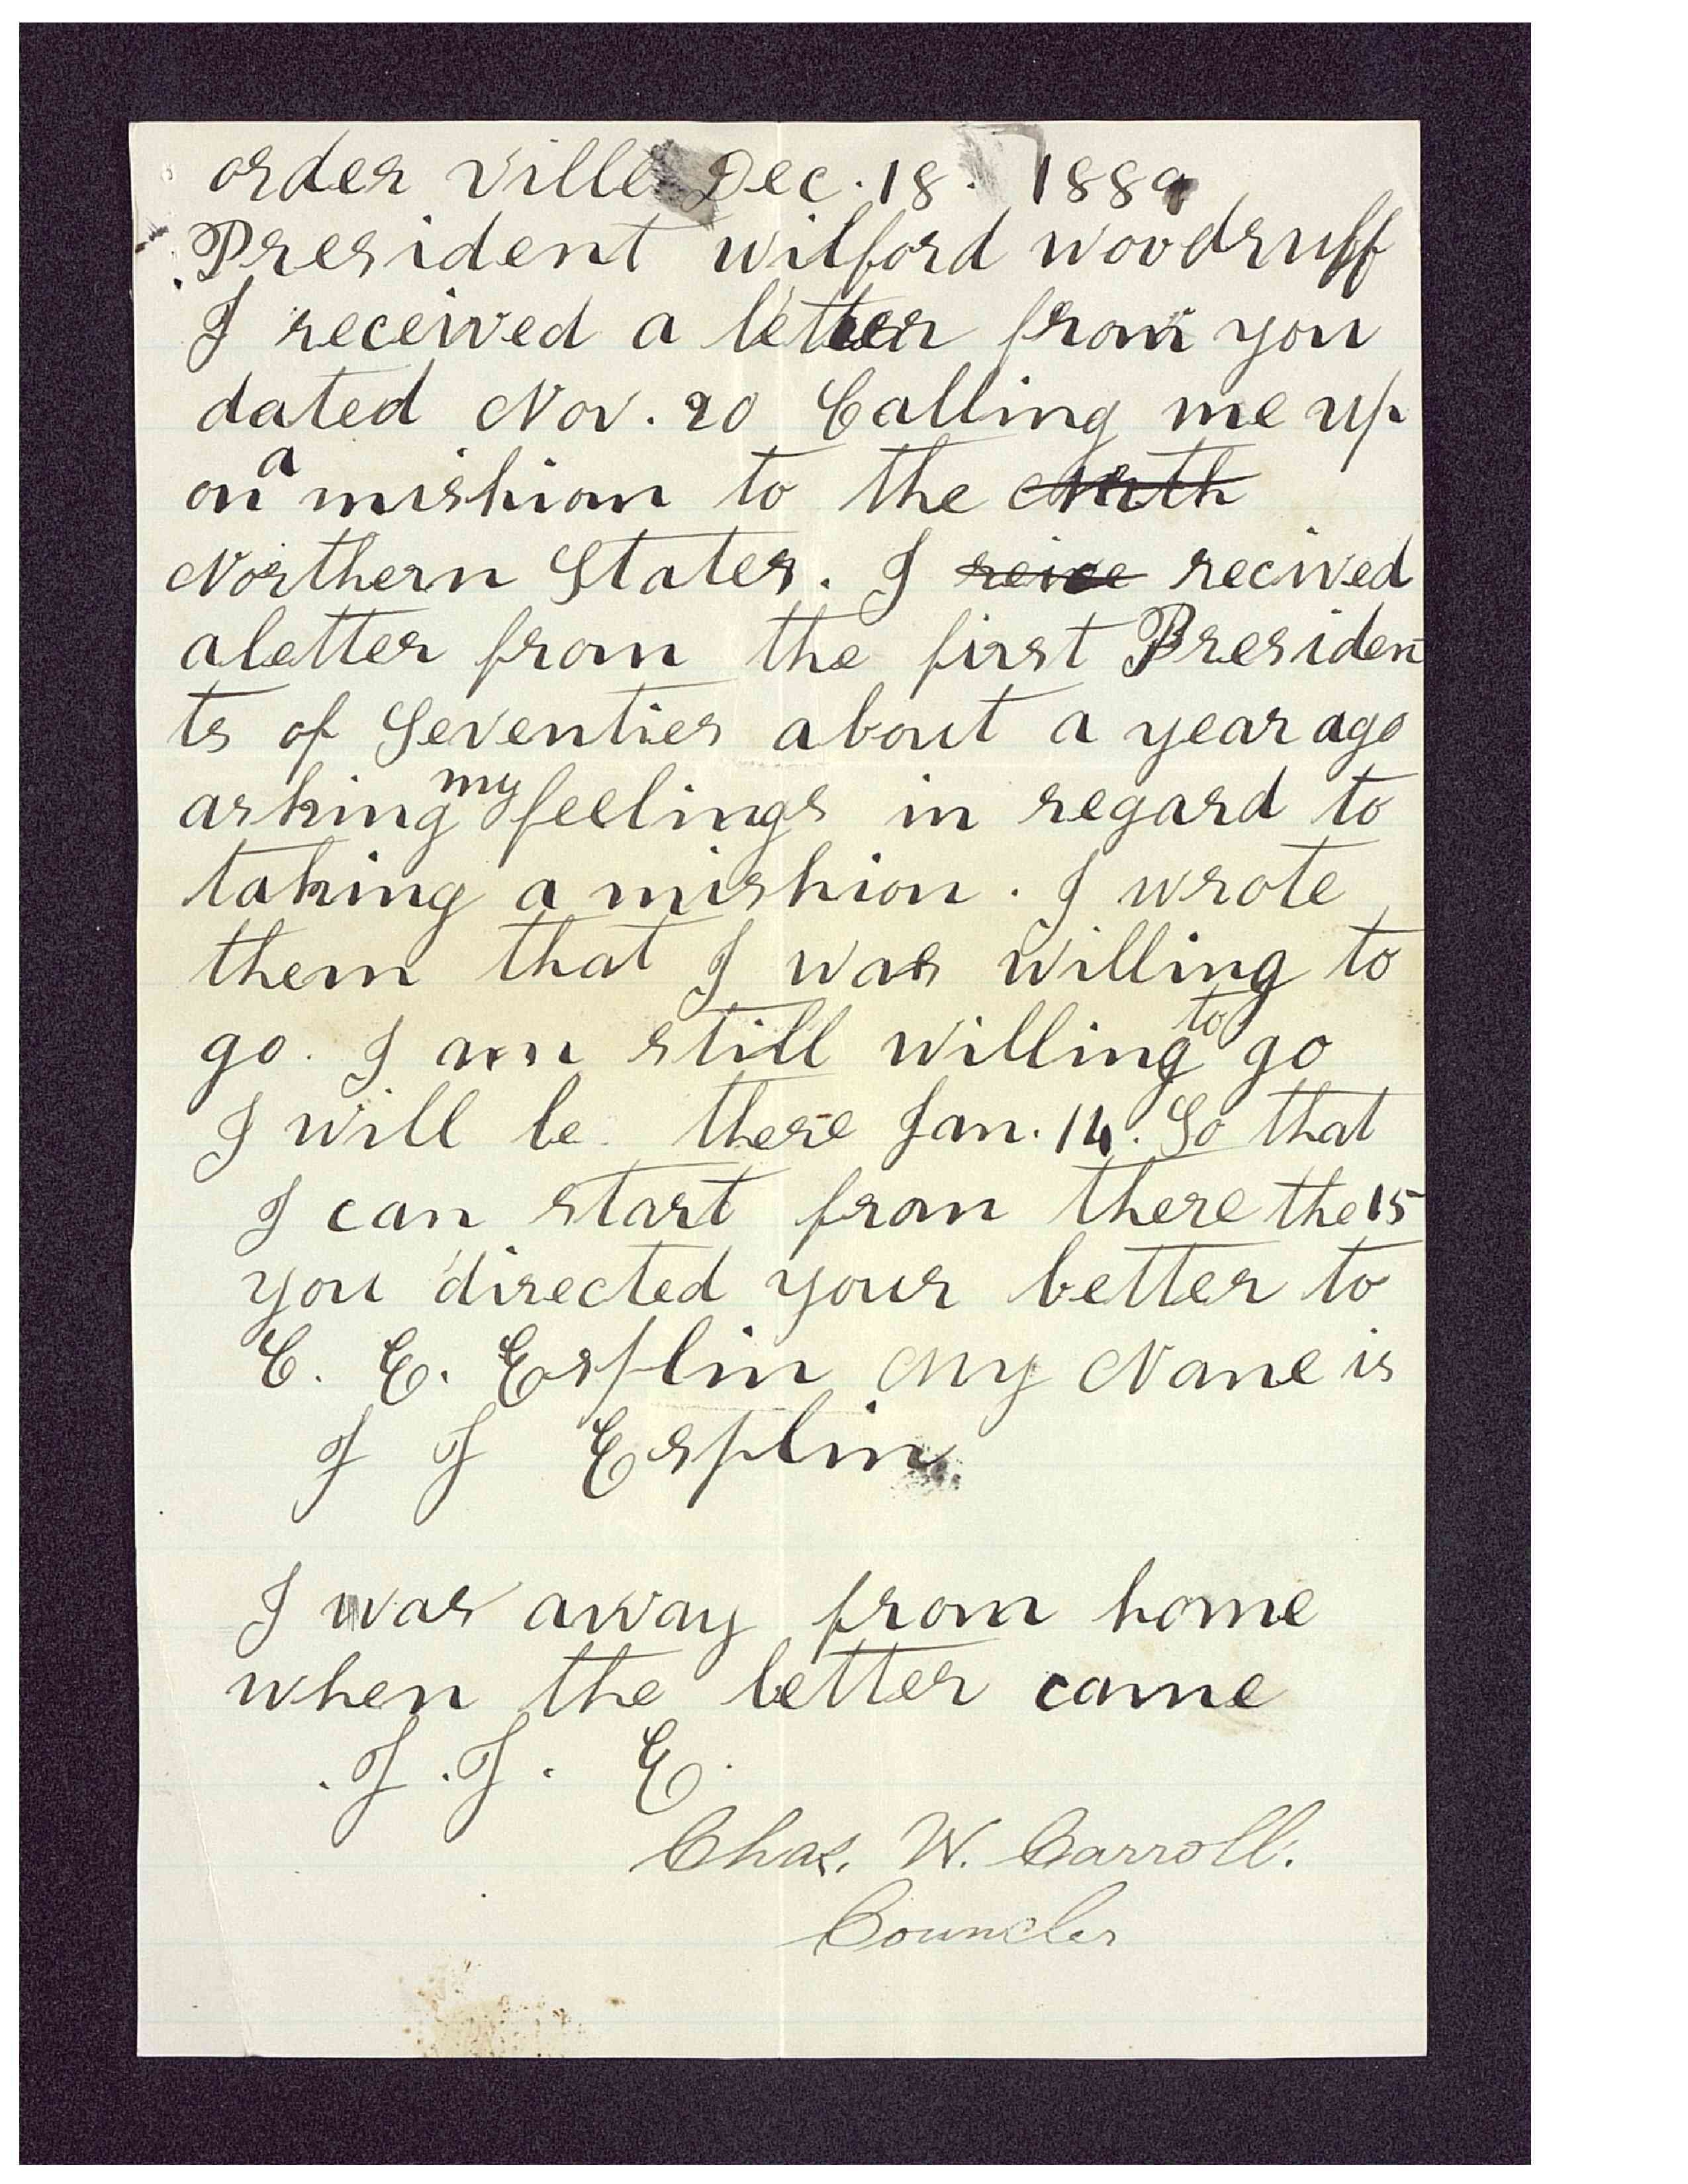 order ville Dec. 18. 1889
President wilford woodruff
I received a letter from you
dated Nov. 20 Calling me up
on a mishion to the North
Northern States. I reice recived
a letter from the first Presiden
ts of Seventies about a year ago
asking my feelings in regard to
taking a mishion. I wrote
them that I was willing to
go. I am still willing to go
I will be there Jan. 14. So that
I can start from there the 15
you directed your letter to
C. E. Esplin My Name is
J J Esplin
I was away from home
when the letter came
.J.J. E.
Chas. W. Carroll.
Councler